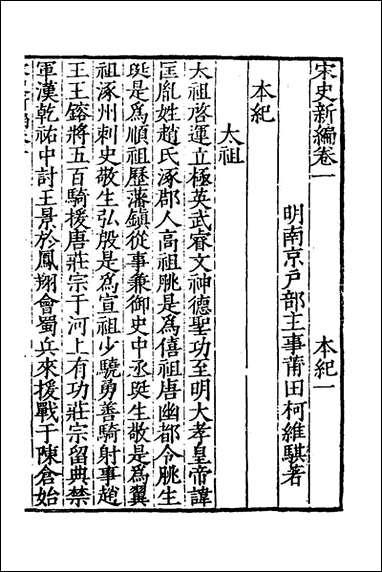 宋史新編卷一　本紀一
明南京戶部主事莆田柯維騏著
本紀
太祖
太祖啓運立極英武睿文神德聖功至明大孝皇帝諱
匡胤姓趙氏涿郡人高祖朓是爲僖祖唐幽都令朓生
珽是爲順祖歷藩鎮從事兼御史中丞珽生敬是爲翼
祖涿州刺史敬生弘殷是爲宣祖少驍勇善騎射事趙
王王鎔將五百騎援唐莊宗于河上有功莊宗留典禁
軍漢乾祐中討王景於鳳翔會蜀兵來援戰于陳倉始